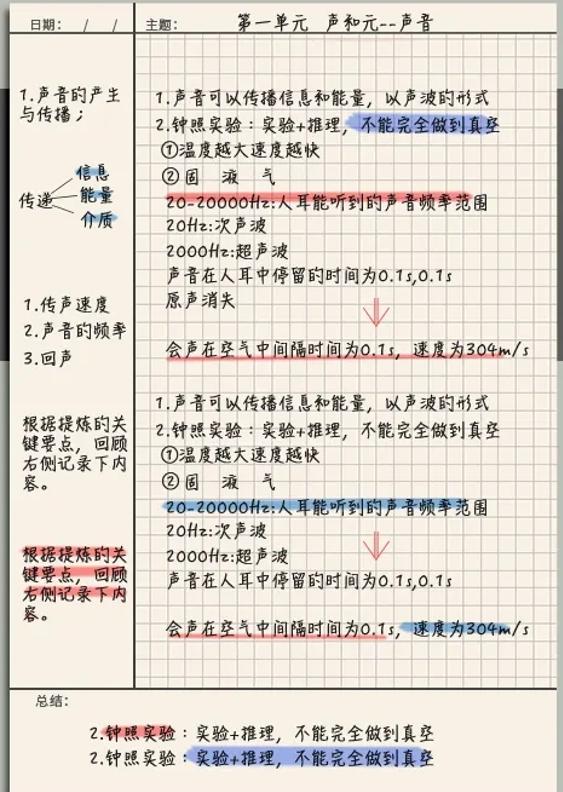 日期： / /
主题： 第一单元 声和元--声音
1.声音的产生
与传播；
传递
信息
能量
介质
1.传声速度
2.声音的频率
3.回声
根据提炼的关
键要点，回顾
右侧记录下内
容。
根据提炼的关
键要点，回顾
右侧记录下内
容。
1.声音可以传播信息和能量，以声波的形式
2.钟照实验：实验+推理，不能完全做到真空
①温度越大速度越快
②固 液 气
20-20000Hz:人耳能听到的声音频率范围
20Hz:次声波
2000Hz:超声波
声音在人耳中停留的时间为0.1s,0.1s
原声消失
会声在空气中间隔时间为0.1s，速度为304m/s
1.声音可以传播信息和能量，以声波的形式
2.钟照实验：实验+推理，不能完全做到真空
①温度越大速度越快
②固 液 气
20-20000Hz:人耳能听到的声音频率范围
20Hz:次声波
2000Hz:超声波
声音在人耳中停留的时间为0.1s,0.1s
会声在空气中间隔时间为0.1s，速度为304m/s
总结：
2.钟照实验：实验+推理，不能完全做到真空
2.钟照实验：实验+推理，不能完全做到真空